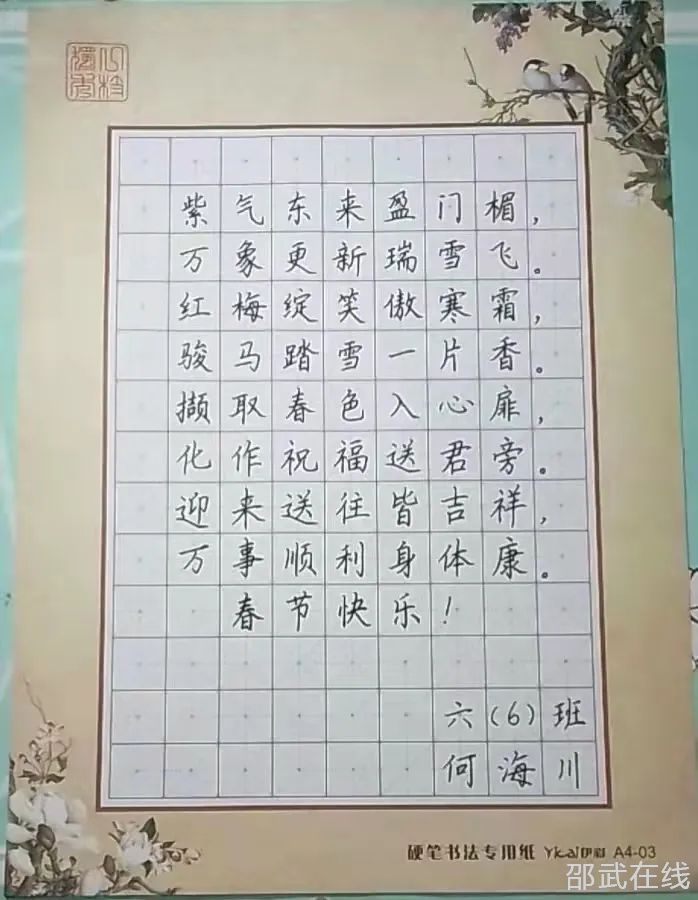 紫气东来盈门楣，
万象更新瑞雪飞。
红梅绽笑傲寒霜，
骏马踏雪一片香。
撷取春色入心扉，
化作祝福送君旁。
迎来送往皆吉祥，
万事顺利身体康。
春节快乐！
六(6)班
何海川
硬笔书法专用纸 A4-03
邵武在线